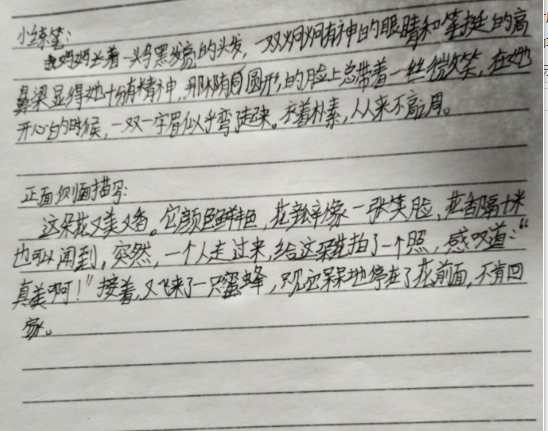 小练笔:
我妈妈长着一头乌黑发亮的头发,一双炯炯有神的眼睛和笔挺的高
鼻梁显得她十分有精神,那椭圆形的脸上总带着一丝微笑,在她
开心的时候,一双一字眉似乎弯起来。衣着朴素,从来不高调。
正面侧面描写:
这朵花又美又香。它颜色鲜艳,花瓣像一张笑脸,花香隔十米
也可以闻到,突然,一个人走过来,给这朵花拍了一个照,感叹道:“
真美啊!”接着,又飞来了一只蜜蜂,只见它呆呆地停在了花前面,不肯回
家。